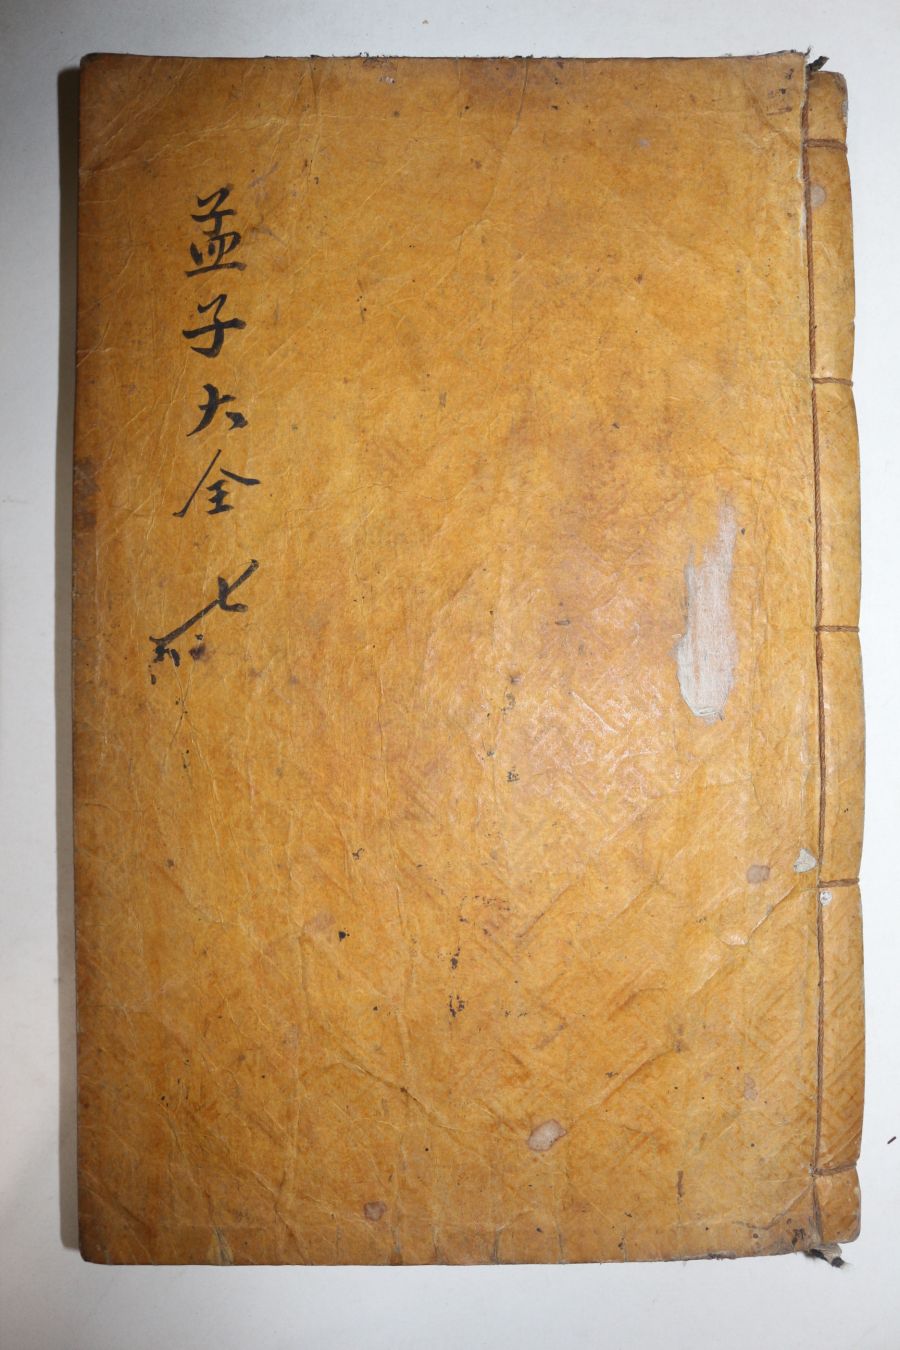 孟子大全 七